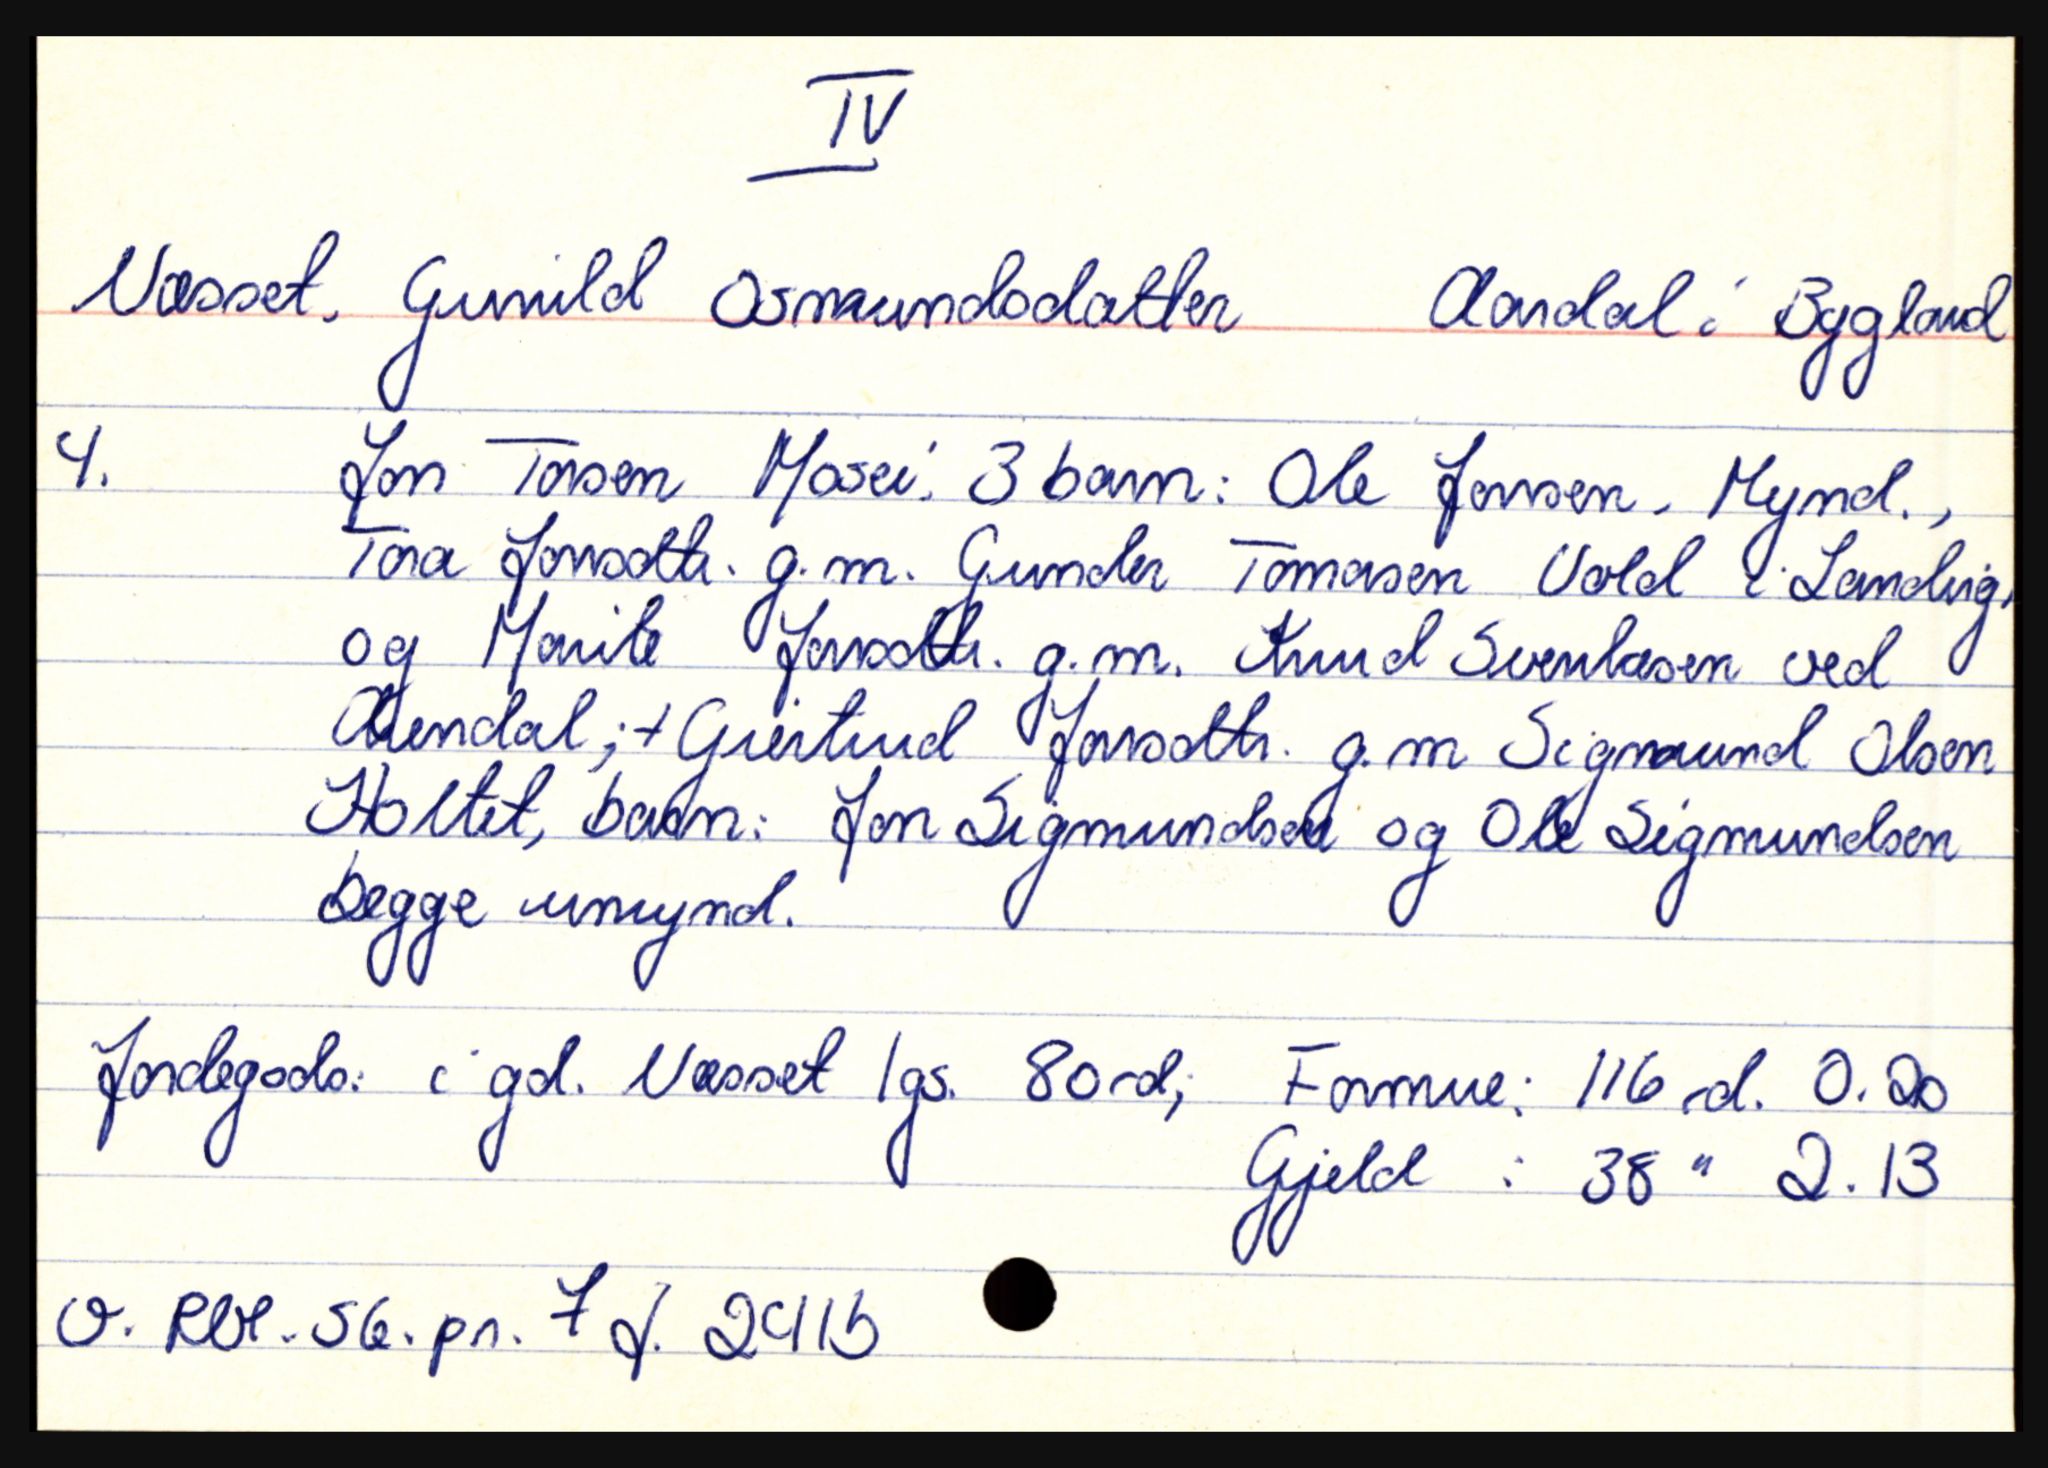 IV
Næsset, Gunild Osmundsdatter Aardal i Bygland
4. Jon Torsen Mosei: 3 barn: Ole Jonsen, Mynd.,
Tora Jonsdtr. g.m. Gunder Tomasen Vold i Landvig,
og Marite Jonsdtr. g.m. Knud Svenkasen ved
Arendal; + Giertrud Jonsdtr. g.m Sigmund Olsen
Holtet, barn: Jon Sigmundsen og Ole Sigmundsen
begge umynd.
Jordegods: i gd. Næsset lgs. 80 rd; Formue: 116 rd. 0. 20
Gjeld : 38 " 2. 13
v. RVl. 56. pr. 7 f. 241b